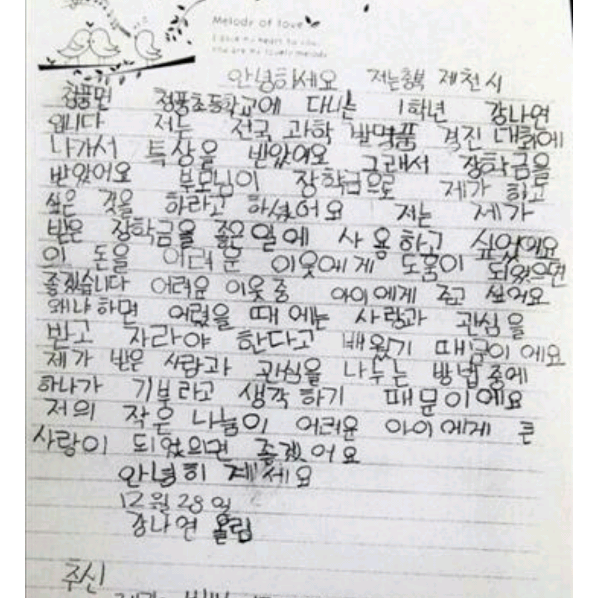 Melody of love
안녕하세요 저는충북 제천시
청풍면 청풍초등학교에 다니는 1학년 강나연
입니다 저는 전국 과학 발명품 경진 대회에
나가서 특상을 받았어요 그래서 장학금을
받았어요 부모님이 장학금으로 제가 하고
싶은 것을 하라고 하셨어요 저는 제가
받은 장학금을 좋은일에 사용하고 싶었어요
이 돈을 어려운 이웃에게 도움이 되었으면
좋겠습니다 어려운 이웃중 아이에게 주고 싶어요
왜냐하면 어렸을 때에는 사랑과 관심을
받고 자라야 한다고 배웠기 때문이에요
제가 받은 사랑과 관심을 나누는 방법중에
하나가 기부라고 생각하기 때문이에요
저의 작은 나눔이 어려운 아이에게 큰
사랑이 되었으면 좋겠어요
안녕히 계세요
12월 28일
강나연 올림
추신